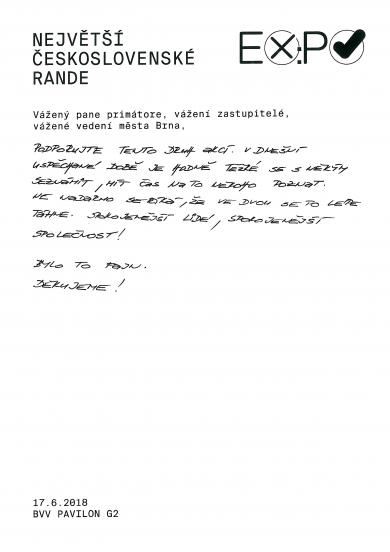 NEJVĚTŠÍ
ČESKOSLOVENSKÉ
RANDE
EXPO
Vážený pane primátore, vážení zastupitelé,
vážené vedení města Brna,
PODPORUJTE TENTO DRUH AKCÍ. V DNEŠNÍ
USPĚCHANÉ DOBĚ JE HODNĚ TĚŽKÉ SE S NĚKÝM
SEZNÁMIT, MÍT ČAS NA TO NĚKOHO POZNAT.
NE NADARMO SE ŘÍKÁ, ŽE VE DVOU SE TO LÉPE
TÁHNE. SPOKOJENĚJŠÍ LIDÉ, SPOKOJENĚJŠÍ
SPOLEČNOST!
BYLO TO FAJN.
DĚKUJEME!
17.6.2018
BVV PAVILON G2